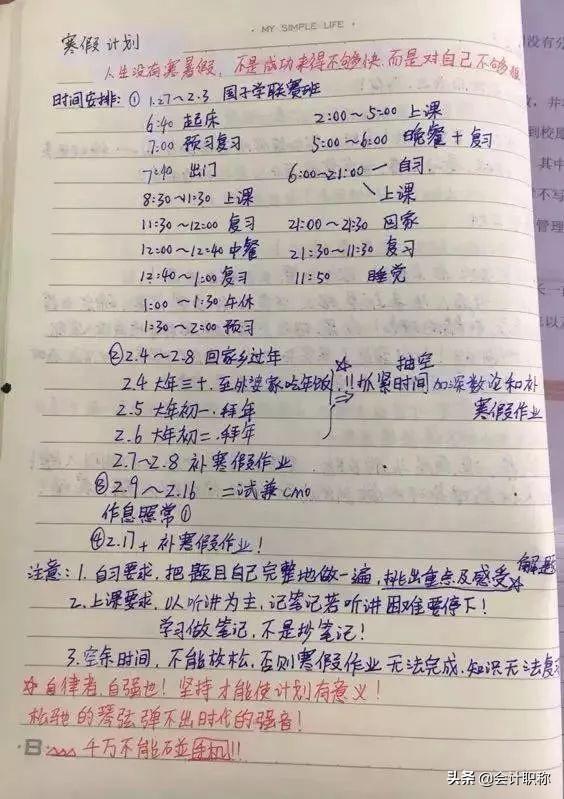 · MY SIMPLE LIFE ·
寒假计划
人生没有寒暑假，不是成功来得不够快，而是对自己不够狠
时间安排：① 1.27～2.3 国子学联赛班
6:40 起床 2:00～5:00 上课
7:00 预习复习 5:00～6:00 晚餐+复习
7:40 出门 6:00～21:00 — 自习
8:30～11:30 上课 上课
11:30～12:00 复习 21:00～21:30 回家
12:00～12:40 中餐 21:30～11:30 复习
12:40～1:00 复习 11:50 睡觉
1:00～1:30 午休
1:30～2:00 预习
② 2.4～2.8 回家乡过年 抽空
2.4 大年三十，至外婆家吃年饭 !!抓紧时间加深数论和补
2.5 大年初一，拜年 寒假作业
2.6 大年初二，拜年
2.7～2.8 补寒假作业
③ 2.9～2.16 · 二试兼CMO
作息照常①
④ 2.17+ 补寒假作业！
注意：1. 自习要求，把题目自己完整地做一遍，挑出重点及感受 解题
2. 上课要求，以听讲为主，记笔记若听讲困难要停下！
学习做笔记，不是抄笔记！
3. 空余时间，不能放松，否则寒假作业无法完成，知识无法复习
☆自律者，自强也！坚持才能使计划有意义！
松弛的琴弦弹不出时代的强音！
千万不能碰手机!!
头条 @会计职称